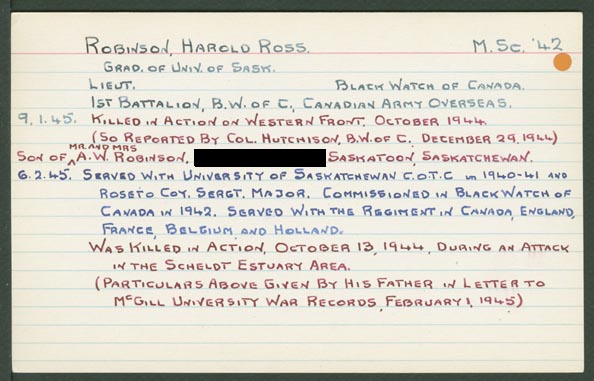 ROBINSON, HAROLD ROSS. M.SC. '42
GRAD. OF UNIV. OF SASK.
LIEUT. BLACK WATCH OF CANADA.
1ST BATTALION, B.W. OF C., CANADIAN ARMY OVERSEAS.
9.1.45. KILLED IN ACTION ON WESTERN FRONT, OCTOBER 1944.
(SO REPORTED BY COL. HUTCHISON, B.W. OF C., DECEMBER 29, 1944)
MR. AND MRS
SON OF ^ A.W. ROBINSON, SASKATOON, SASKATCHEWAN.
6.2.45. SERVED WITH UNIVERSITY OF SASKATCHEWAN C.O.T.C IN 1940-41 AND
ROSE TO COY. SERGT. MAJOR. COMMISSIONED IN BLACK WATCH OF
CANADA IN 1942. SERVED WITH THE REGIMENT IN CANADA, ENGLAND,
FRANCE, BELGIUM AND HOLLAND.
WAS KILLED IN ACTION, OCTOBER 13, 1944, DURING AN ATTACK
IN THE SCHELDT ESTUARY AREA.
(PARTICULARS ABOVE GIVEN BY HIS FATHER IN LETTER TO
McGILL UNIVERSITY WAR RECORDS, FEBRUARY 1, 1945)